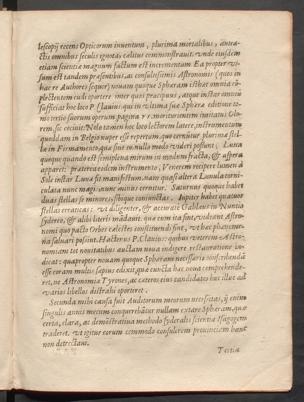 lescopij recens Opticorum inuentum, plurima mortalibus, antea-
ctis omnibus seculis ignota, cælitus commonstrauit. vnde eiusdem
etiam scientiæ magnum factum est incrementum Ea propter vi-
sum est tandem præsentibus, ac consultissimis Astronomis (quos in
hac re Authores sequor) nouam quoque Sphæram isthæc omnia cõ-
plectentem cudi oportere inter quos præcipuus, atque instar omniũ
sufficiat hoc loco P. Clauius qui in vltima suæ Sphæræ editione to-
mo tertio suorum operum pagina
rem sic conuic Nolo tamen hoc loco lectorem latere, instrumentum
quodam in Belgio nuper esse repertum, quo cernuntur plurimæ stel-
læ in Firmamento, quæ sine eo nullo modo videri possunt, Luna
quoque quando est
apparet: præterea eodem instrumento, Venerem recipere lumen à
Sole instar Lunæ sit manifestum, nunc quasi altera Lunula corni-
culata nunc magi
duas stellas se minores sibique coniunctas. Iupiter habet quatuor
stellas erraticas: vt diligenter, & accuratè Galilæus in Nuncio
sidereo, & alibi literis mãdauit. quæ cum ita sint, videant Astro-
nomi quo pacto Orbes cælestes constituendi sint, vt hæc phænome-
na saluari possint. Hactenus P. Clauius: quibus veterem Astro-
nomiam tot nouitatibus auctam noua indigere, restauratione in-
dicat: quapropter nouam quoque Sphæram necessario conscribendã
esse coram multis sæpius edixit, quæ cuncta hæc noua comprehende-
ret, ne Astronomiæ Tyrones, ac cæteros eius candidatos huc illuc ad
varios libellos distrahi oporteret.
Secunda mihi causa fuit Auditorum meorum necessitas, ij enim
singulis annis mecum conquerebãtur nullam extare Sphæram, quæ
certa, clara, ac demõstratiua methodo syderalis scientiæ Isagogem
traderet. vt igitur eorum commodo consulerem prouinciam haud
non detrectaui.
Tertia